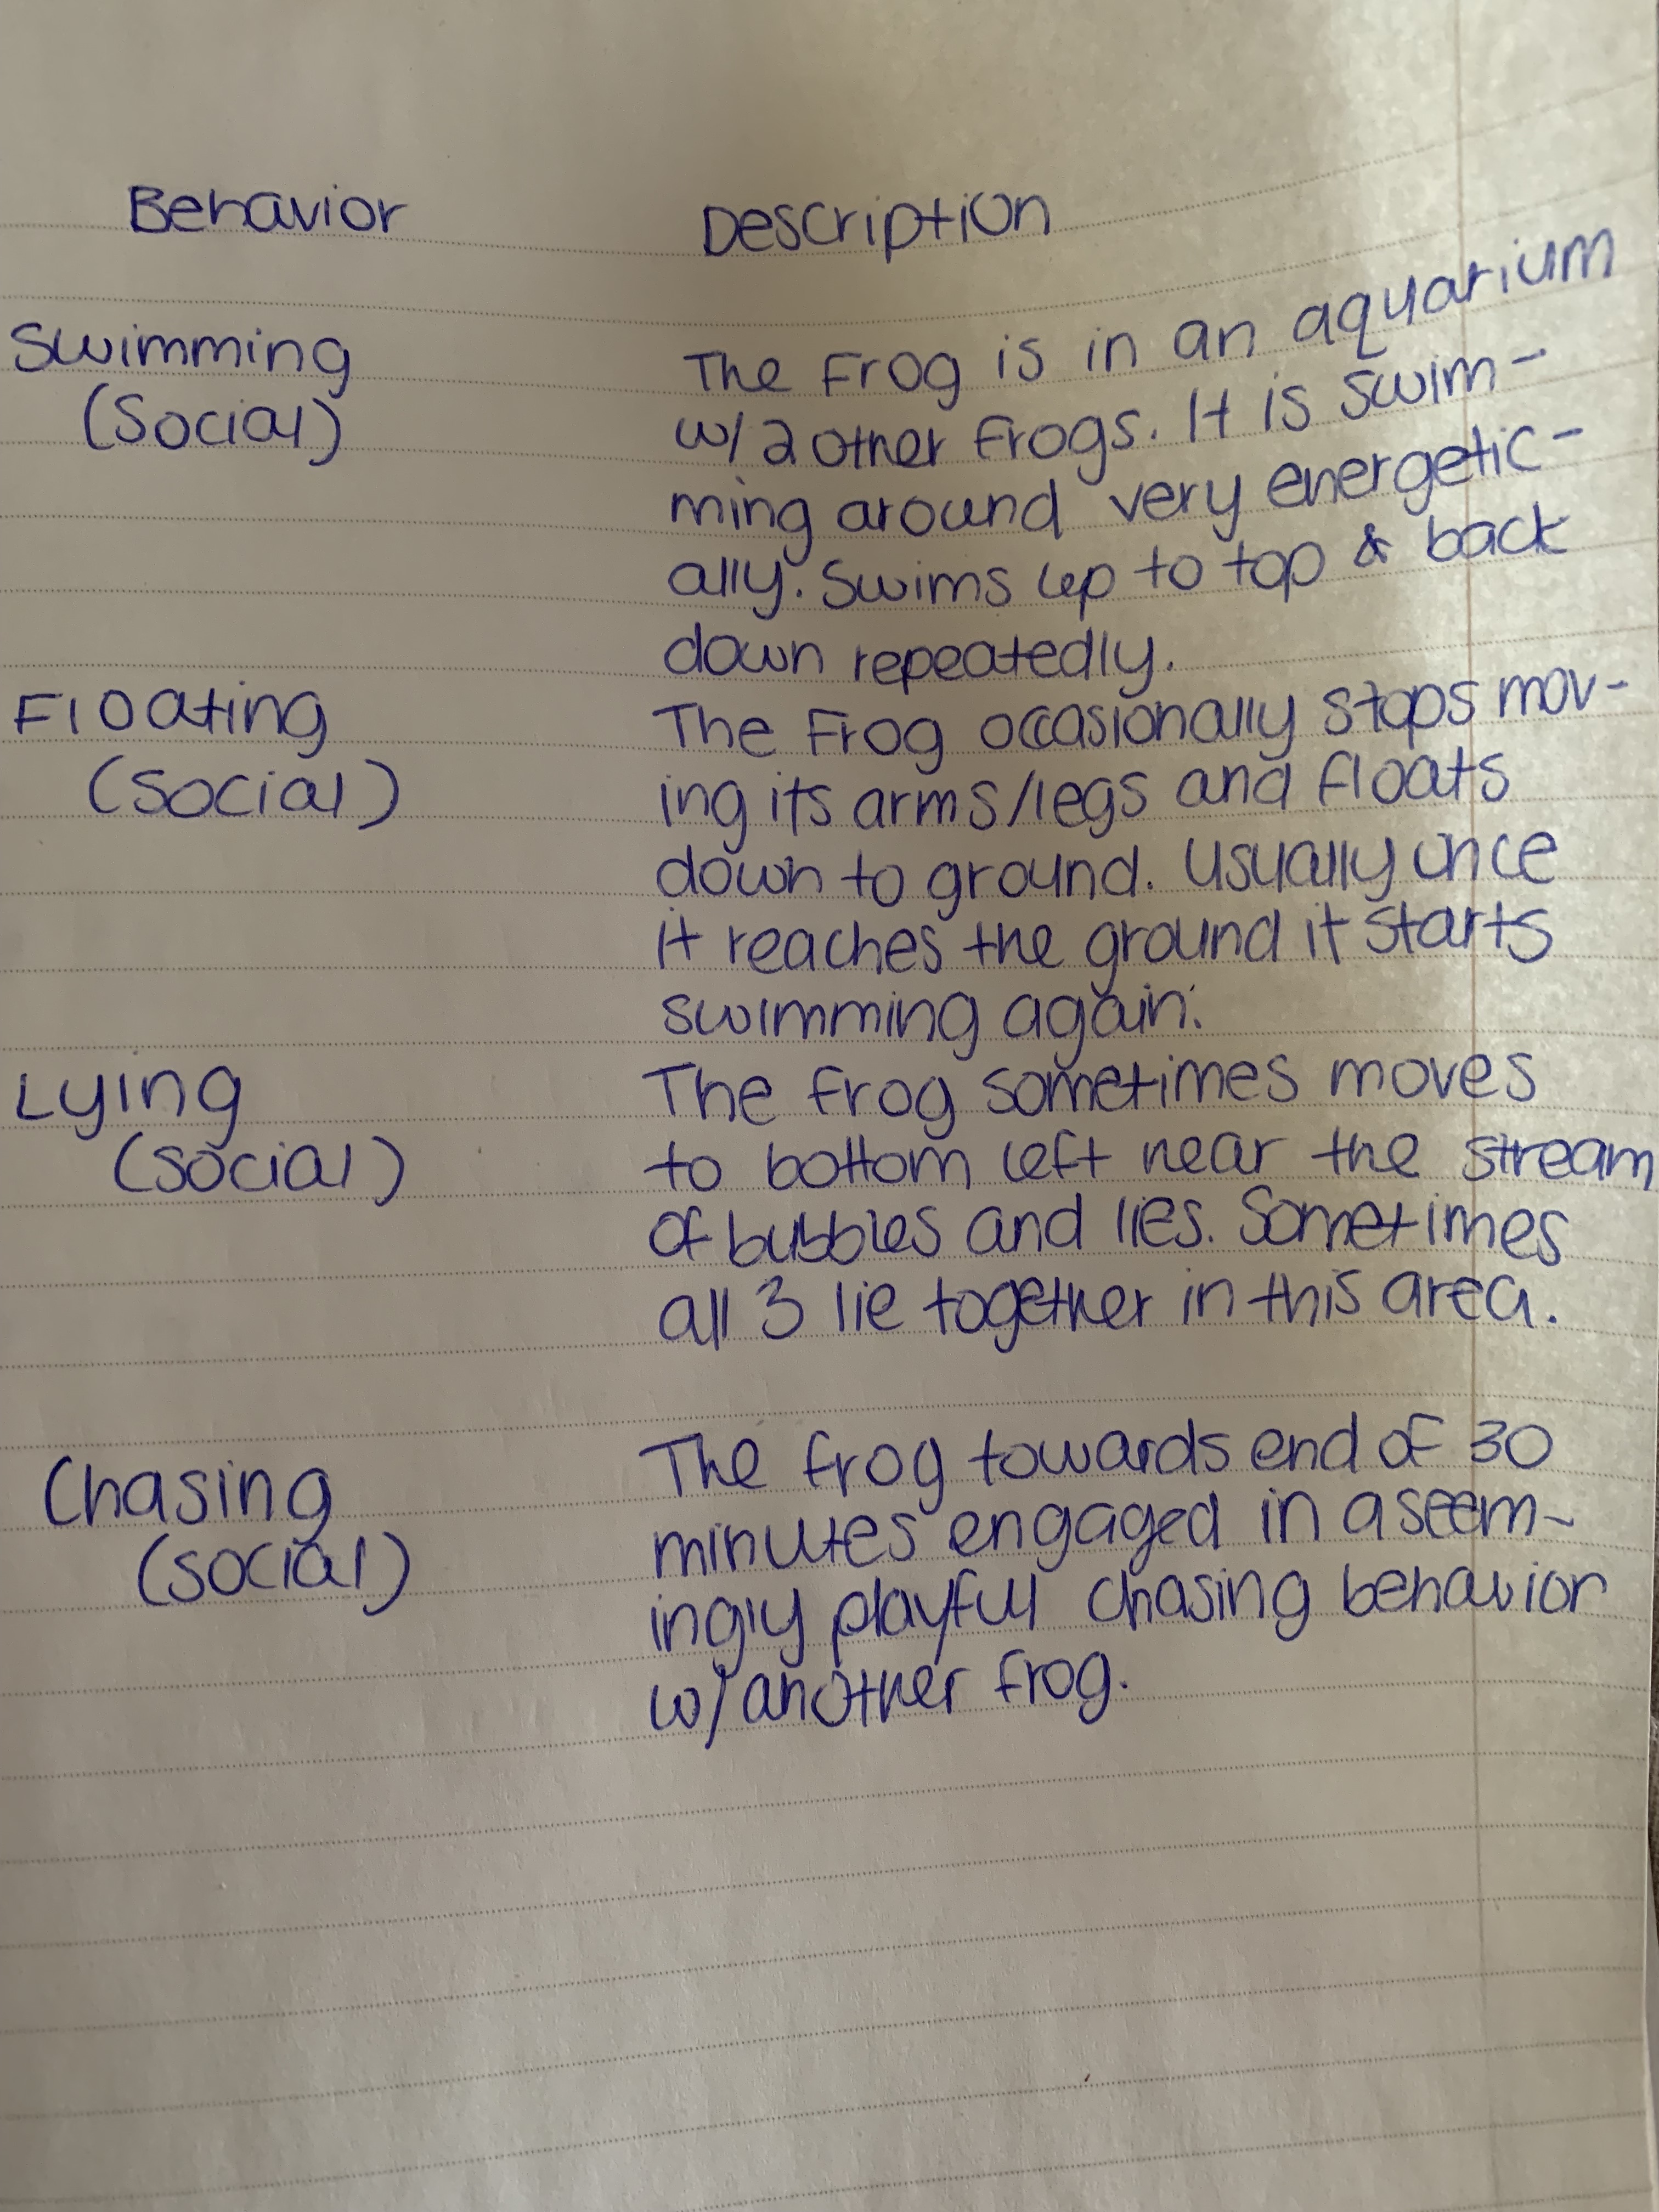 Behavior Description
Swimming The Frog is in an aquarium
(Social) w/ 2 other frogs. It is swim-
ming around very energetic-
ally. Swims up to top & back
down repeatedly.
Floating The Frog occasionally stops mov-
(Social) ing its arms/legs and floats
down to ground. Usually once
it reaches the ground it starts
swimming again.
Lying The frog sometimes moves
(social) to bottom left near the stream
of bubbles and lies. Sometimes
all 3 lie together in this area.
Chasing The frog towards end of 30
(social) minutes engaged in a seem-
ingly playful chasing behavior
w/ another frog.